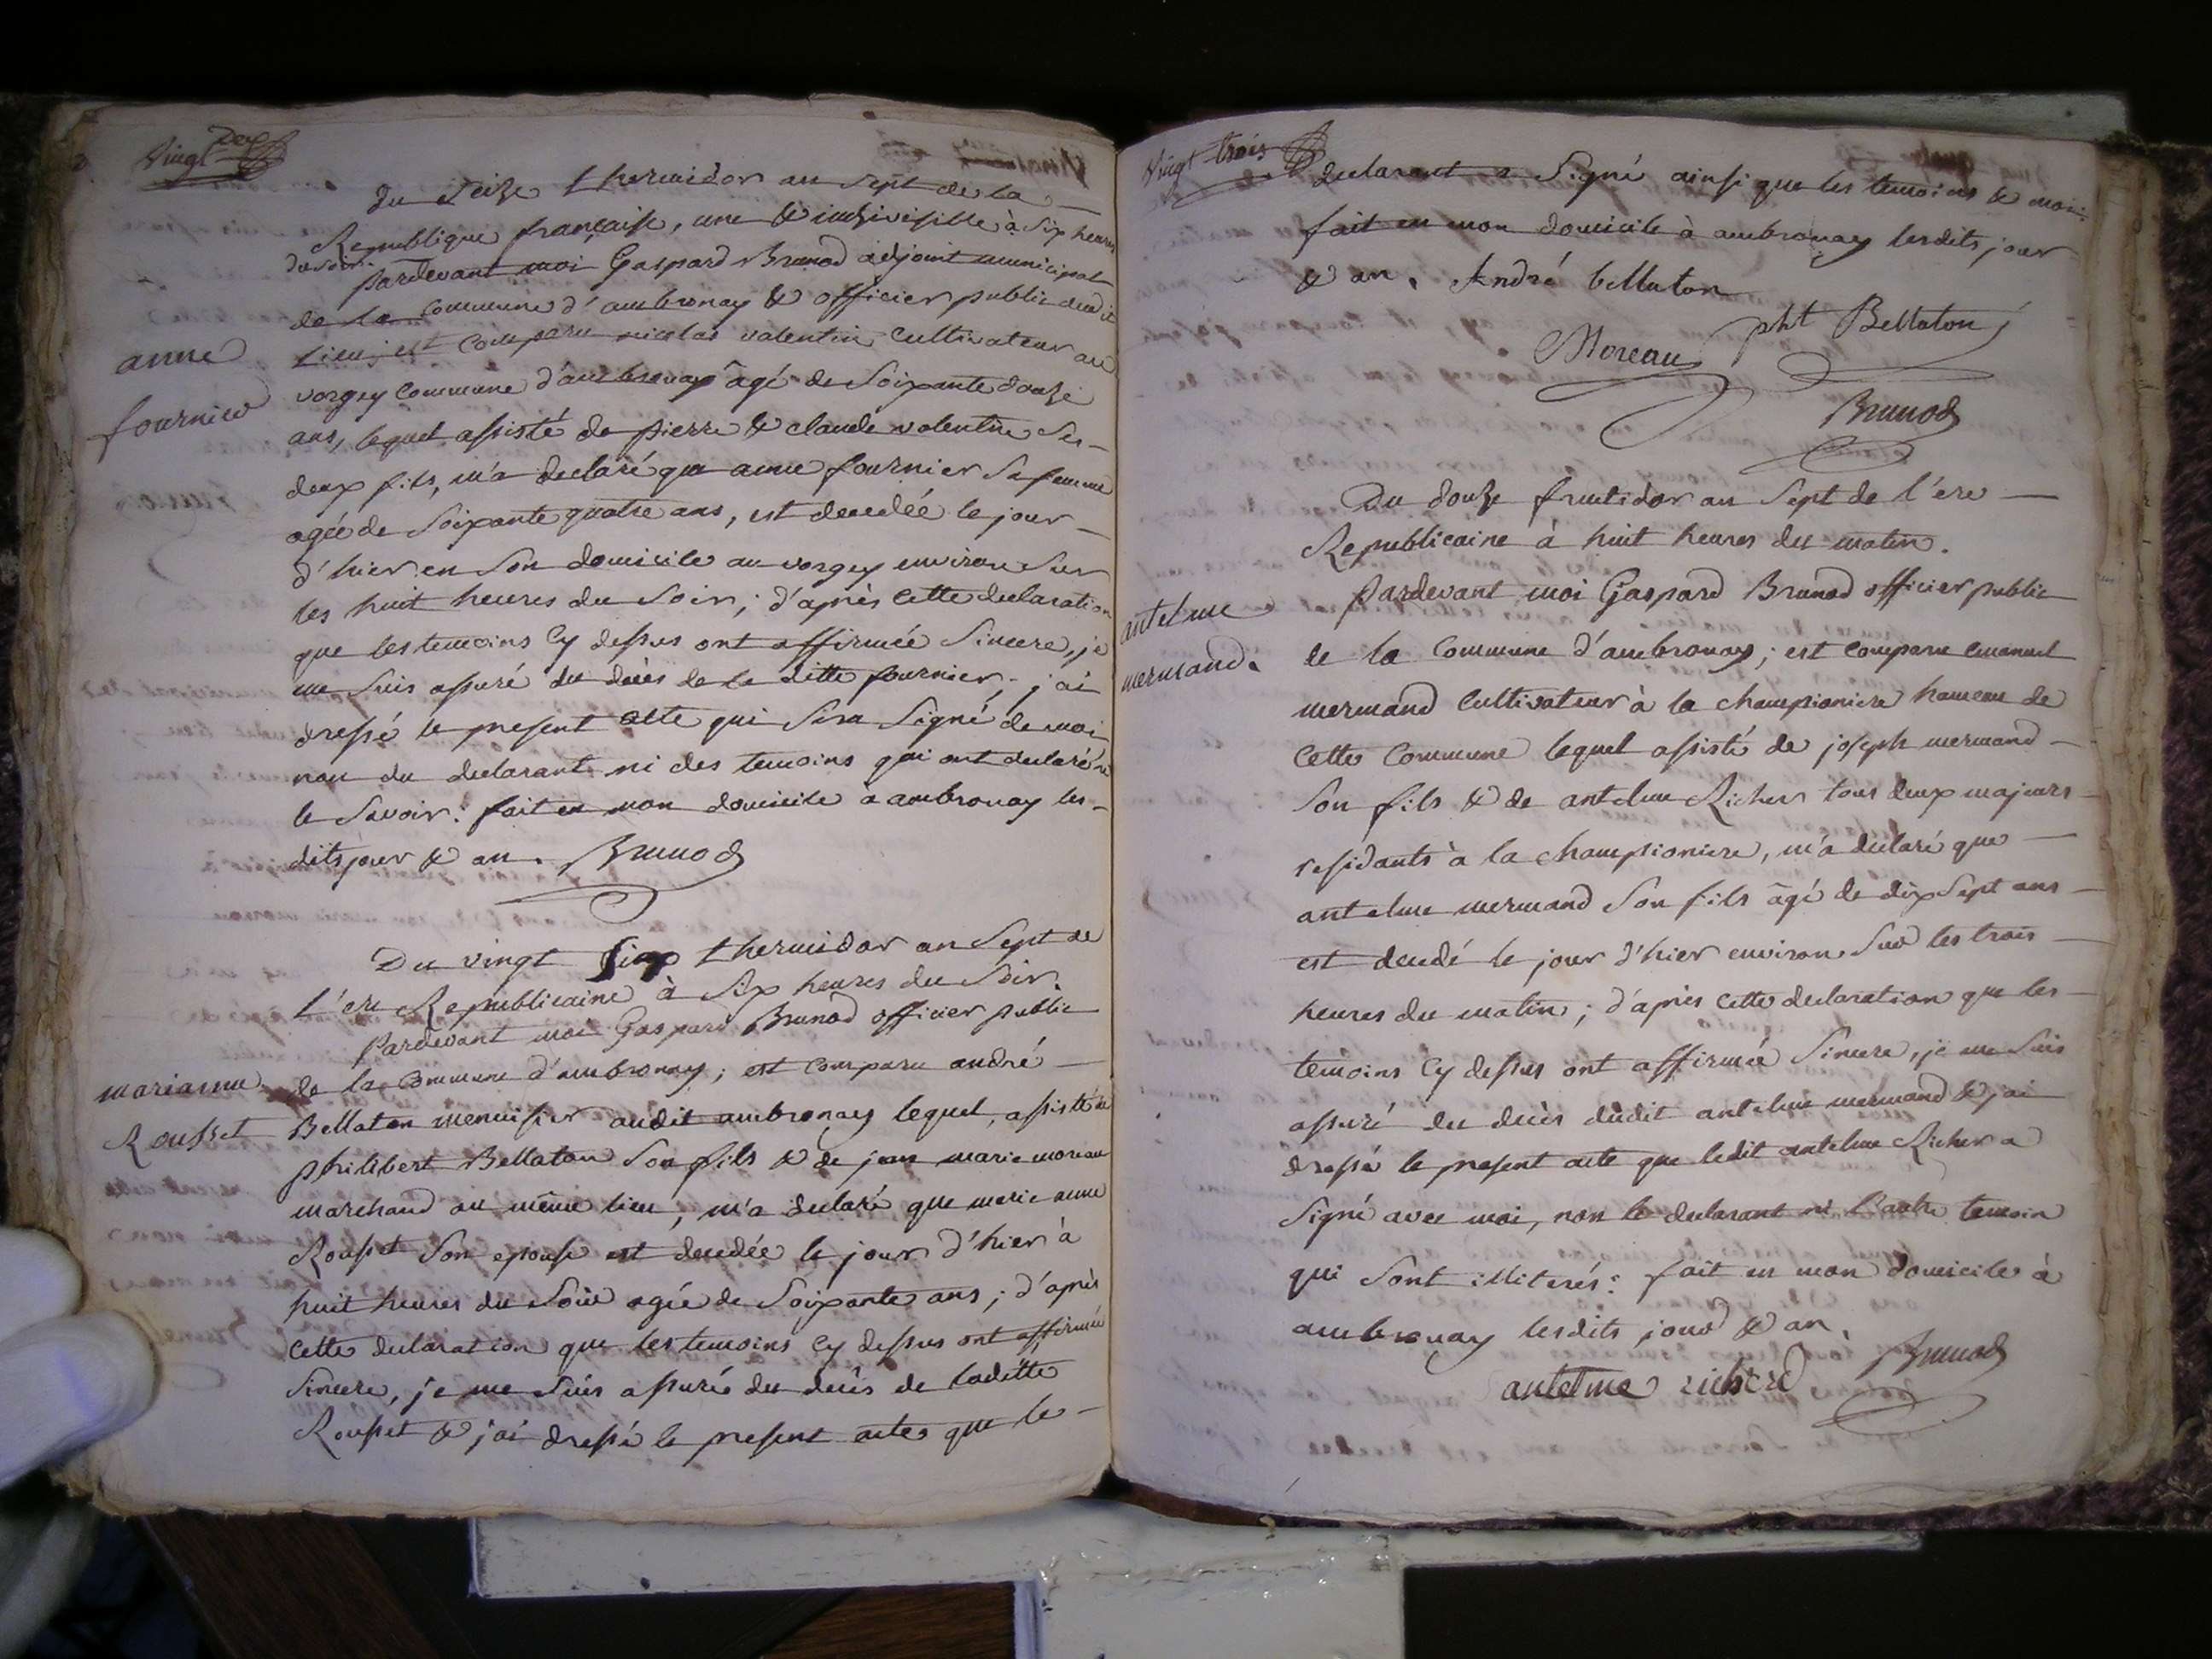 Vingt deux
Du Seize thermidor an Sept de la
Republique française, une & indivisible à Six heures
du Soir.
Pardevant moi Gaspard Brunod adjoint municipal
de la Commune d'ambronay & officier public dudit
lieu; est comparu nicolas valentin Cultivateur au
vorgey Commune d'ambronay âgé de Soixante douze
ans, lequel assisté de pierre & claude valentin Ses
deux fils, m'a declaré que anne fournier Sa femme
agée de Soixante quatre ans, est decedée le jour
d'hier en Son domicile au vorgey environ Sur
les huit heures du Soir; d'après cette declaration
que les temoins Cy dessus ont affirmée Sincere, je
me Suis assuré du décès de la ditte fournier; j'ai
dressé le present acte qui Sera Signé de moi
non du declarant ni des temoins qui ont declaré ne
le Savoir: fait en mon domicile à ambronay les
dits jour & an. Brunod
anne
fournier
Du vingt Six thermidor an Sept de
l'ere Republicaine à Six heures du Soir.
Pardevant moi Gaspard Brunod officier public
de la Commune d'ambronay; est comparu andré
Bellaton menuisier audit ambronay lequel, assisté de
philibert Bellaton Son fils & de jean marie moreau
marchand au même lieu, m'a declaré que marie anne
Rousset Son epouse est decedée le jour d'hier à
huit heures du Soir agée de Soixante ans; d'après
cette declaration que les temoins Cy dessus ont affirmée
Sincere, je me Suis assuré du decès de laditte
Rousset & j'ai dressé le present acte que le
marianne
Rousset
Vingt trois
declarant a Signé ainsi que les temoins & moi:
fait en mon domicile à ambronay lesdits jour
& an. André bellaton
Moreau pht Bellaton
Brunod
Du douze fructidor an Sept de l'ere
Republicaine à huit heures du matin.
Pardevant moi Gaspard Brunod officier public
de la Commune d'ambronay; est comparu emanuel
mermand Cultivateur à la championiere hameau de
cette Commune lequel assisté de joseph mermand
Son fils & de antelme Richer tous deux majeurs
residants à la championiere, m'a déclaré que
antelme mermand Son fils âgé de dix Sept ans
est decedé le jour d'hier environ Sur les trois
heures du matin; d'après cette declaration que les
temoins Cy dessus ont affirmée Sincere, je me Suis
assuré du decès dudit antelme mermand & j'ai
dressé le present acte que ledit antelme Richer a
Signé avec moi, non le declarant ni l'autre temoin
qui Sont illiterés: fait en mon domicile à
ambronay lesdits jour & an.
Brunod
antelme
mermand.